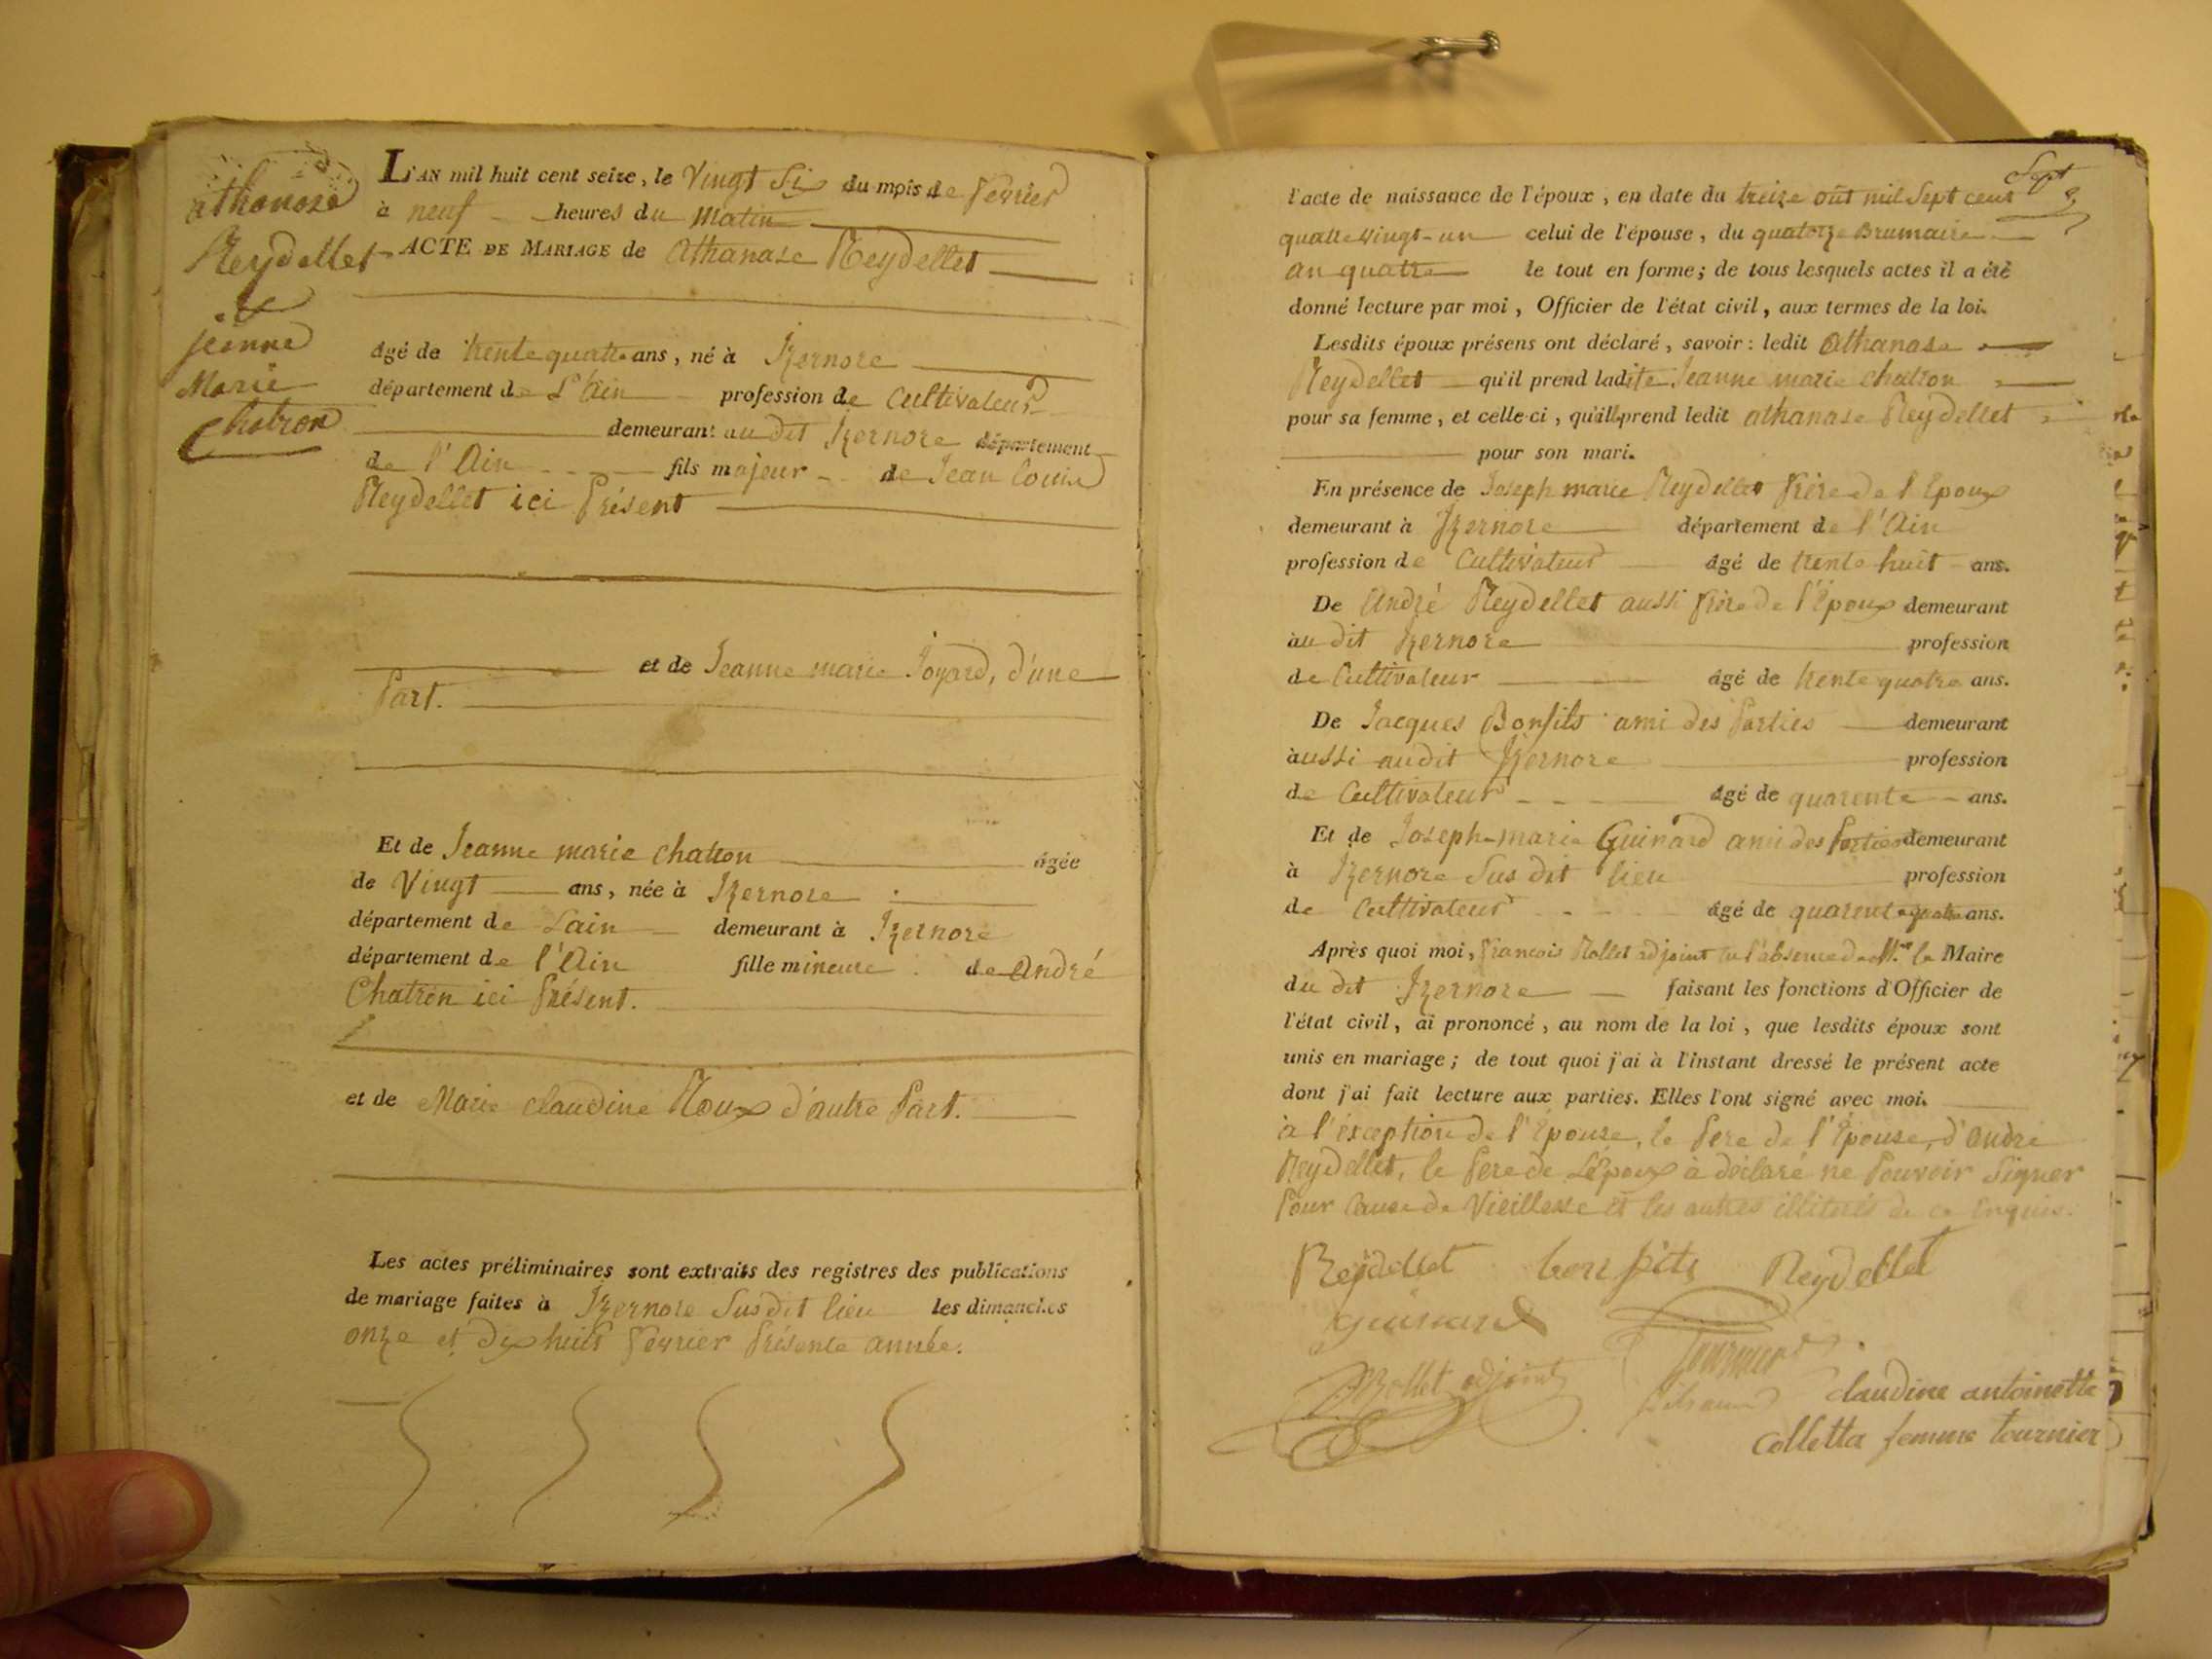 athanase
Reydellet
et
jeanne
Marie
Chatron
L'AN mil huit cent seize, le Vingt Six du mois de fevrier
à neuf heures du Matin
ACTE DE MARIAGE de Athanase Reydellet
âgé de trente quatre ans, né à Izernore
département de L'Ain profession de Cultivateur
demeurant au dit Izernore département
de l'Ain fils majeur de Jean Louis
Reydellet ici Présent
et de Jeanne marie Joyard, d'une
Part.
Et de Jeanne marie chatron âgée
de Vingt ans, née à Izernore
département de Lain demeurant à Izernore
département de l'Ain fille mineure de André
Chatron ici Présent.
et de Marie claudine Roux d'autre Part.
Les actes préliminaires sont extraits des registres des publications
de mariage faites à Izernore Susdit lieu les dimanches
onze et dix huit fevrier Présente année.
Sept
l'acte de naissance de l'époux, en date du treize out mil Sept cent
quatre vingt-un celui de l'épouse, du quatorze Brumaire
an quatre le tout en forme; de tous lesquels actes il a été
donné lecture par moi, Officier de l'état civil, aux termes de la loi.
Lesdits époux présens ont déclaré, savoir: ledit Athanase
Reydellet qu'il prend ladite Jeanne marie chatron
pour sa femme, et celle-ci, qu'ill prend ledit athanase Reydellet
pour son mari.
En présence de Joseph marie Reydellet frère de l'Epoux
demeurant à Izernore département de l'Ain
profession de Cultivateur âgé de trente huit ans.
De André Reydellet aussi frère de l'Epoux demeurant
au dit Izernore profession
de Cultivateur âgé de trente quatre ans.
De Jacques Bonfils ami des Parties demeurant
aussi audit Izernore profession
de Cultivateur âgé de quarente ans.
Et de Joseph-marie Guinard ami des Parties demeurant
à Izernore Sus dit lieu profession
de Cultivateur âgé de quarente quatre ans.
Après quoi moi, francois Rollet adjoint en l'absence de Mr. le Maire
du dit Izernore faisant les fonctions d'Officier de
l'état civil, ai prononcé, au nom de la loi, que lesdits époux sont
unis en mariage; de tout quoi j'ai à l'instant dressé le présent acte
dont j'ai fait lecture aux parties. Elles l'ont signé avec moi.
à l'exception de l'Epouse, le Pere de l'Epouse, d'andré
Reydellet, le Pere de L'Epoux à déclaré ne Pouvoir Signer
Pour Cause de Vieillesse et les autres illiterés de ce Enquis.
Reydellet bonfils Reydellet
guinard
Rollet adjoint Tournier
claudine antoinette
Colletta femme tournier